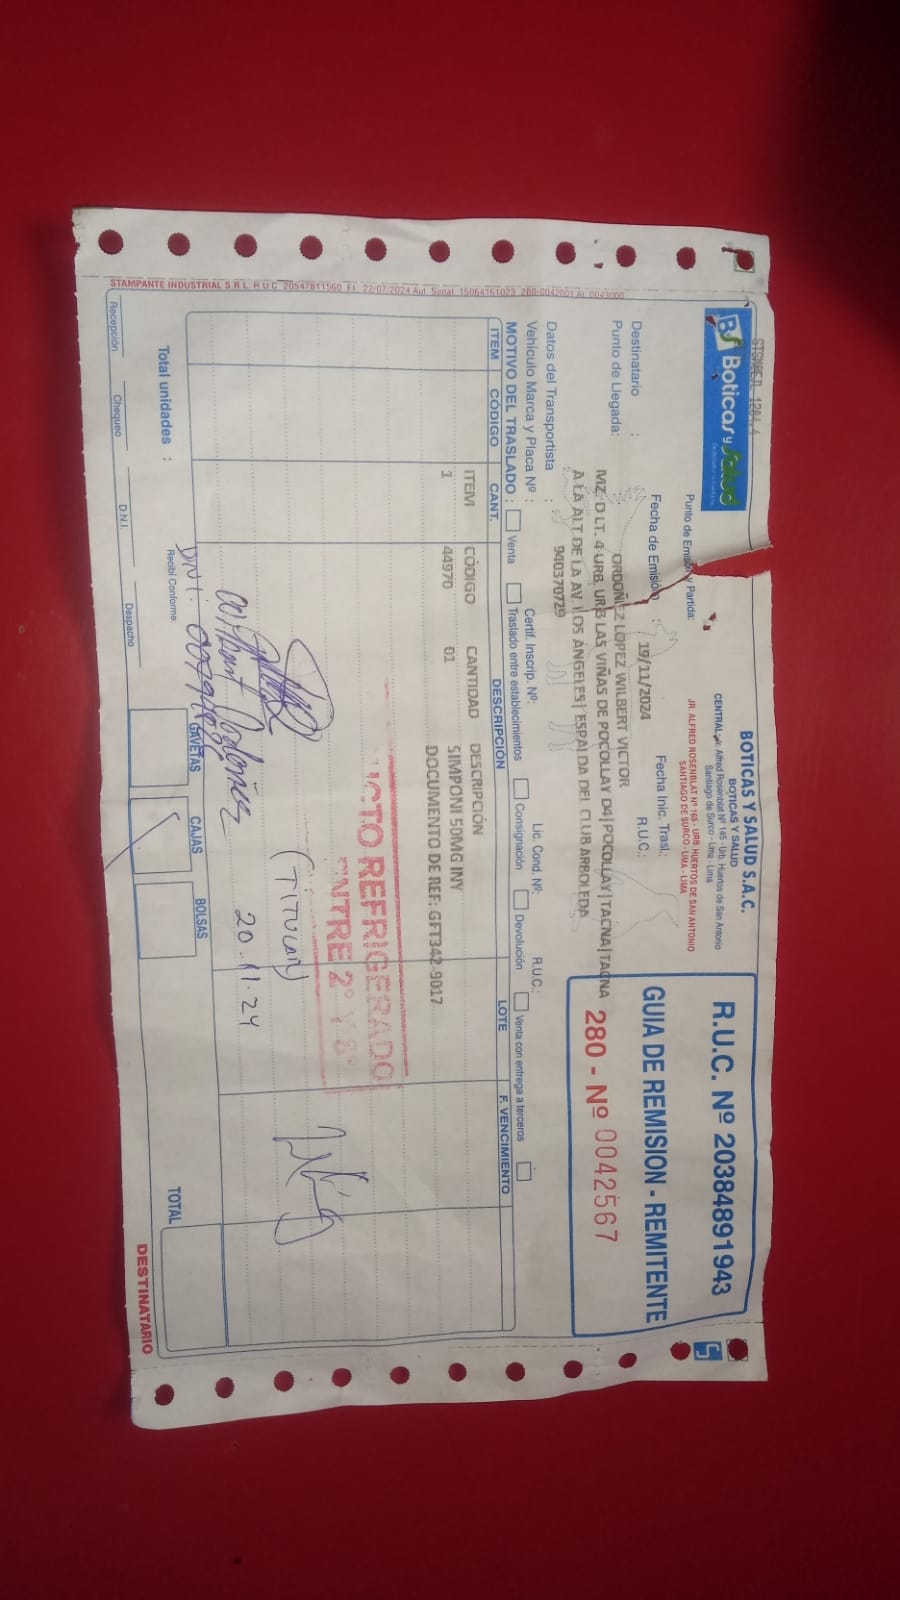 STAMPANTE INDUSTRIAL S.R.L. R.U.C. 20547811560 F.I. 22/07/2024 Aut. Sunat. 15064161023 280-0042001 AL 0043000
Boticas y Salud
BOTICAS Y SALUD S.A.C.
BOTICAS Y SALUD
CENTRAL: Jr. Alfred Rosenblat Nº 145 - Urb. Huertos de San Antonio
Santiago de Surco - Lima - Lima
Punto de Emisión y Partida:
JR. ALFRED ROSENBLAT Nº 165 - URB. HUERTOS DE SAN ANTONIO
SANTIAGO DE SURCO - LIMA - LIMA
R.U.C. Nº 20384891943
GUIA DE REMISION - REMITENTE
280 - Nº 0042567
Fecha de Emisión : 19/11/2024 Fecha Inic. Trasl.:
Destinatario : ORDOÑEZ LOPEZ WILBERT VICTOR R.U.C.:
Punto de Llegada: MZ. D LT. 4 URB. URB LAS VIÑAS DE POCOLLAY D4|POCOLLAY|TACNA|TACNA
A LA ALT. DE LA AV. LOS ANGELES| ESPALDA DEL CLUB ARBOLEDA
940370729
Datos del Transportista : R.U.C.:
Vehículo Marca y Placa Nº : Certif. Inscrip. Nº: Lic. Cond. Nº:
MOTIVO DEL TRASLADO : Venta Traslado entre establecimientos Consignación Devolución Venta con entrega a terceros
ITEM CÓDIGO CANT. DESCRIPCIÓN LOTE F. VENCIMIENTO
ITEM CÓDIGO CANTIDAD DESCRIPCIÓN
1 44970 01 SIMPONI 50MG INY
DOCUMENTO DE REF: GFT342-9017
UCTO REFRIGERADO
ENTRE 2° Y 8°
(TITULAR)
Wilbert Ordoñez 20-11-24
DNI:
Total unidades :
Recibí Conforme:
GAVETAS CAJAS BOLSAS
TOTAL
Recepción Chequeo D.N.I. Despacho
DESTINATARIO